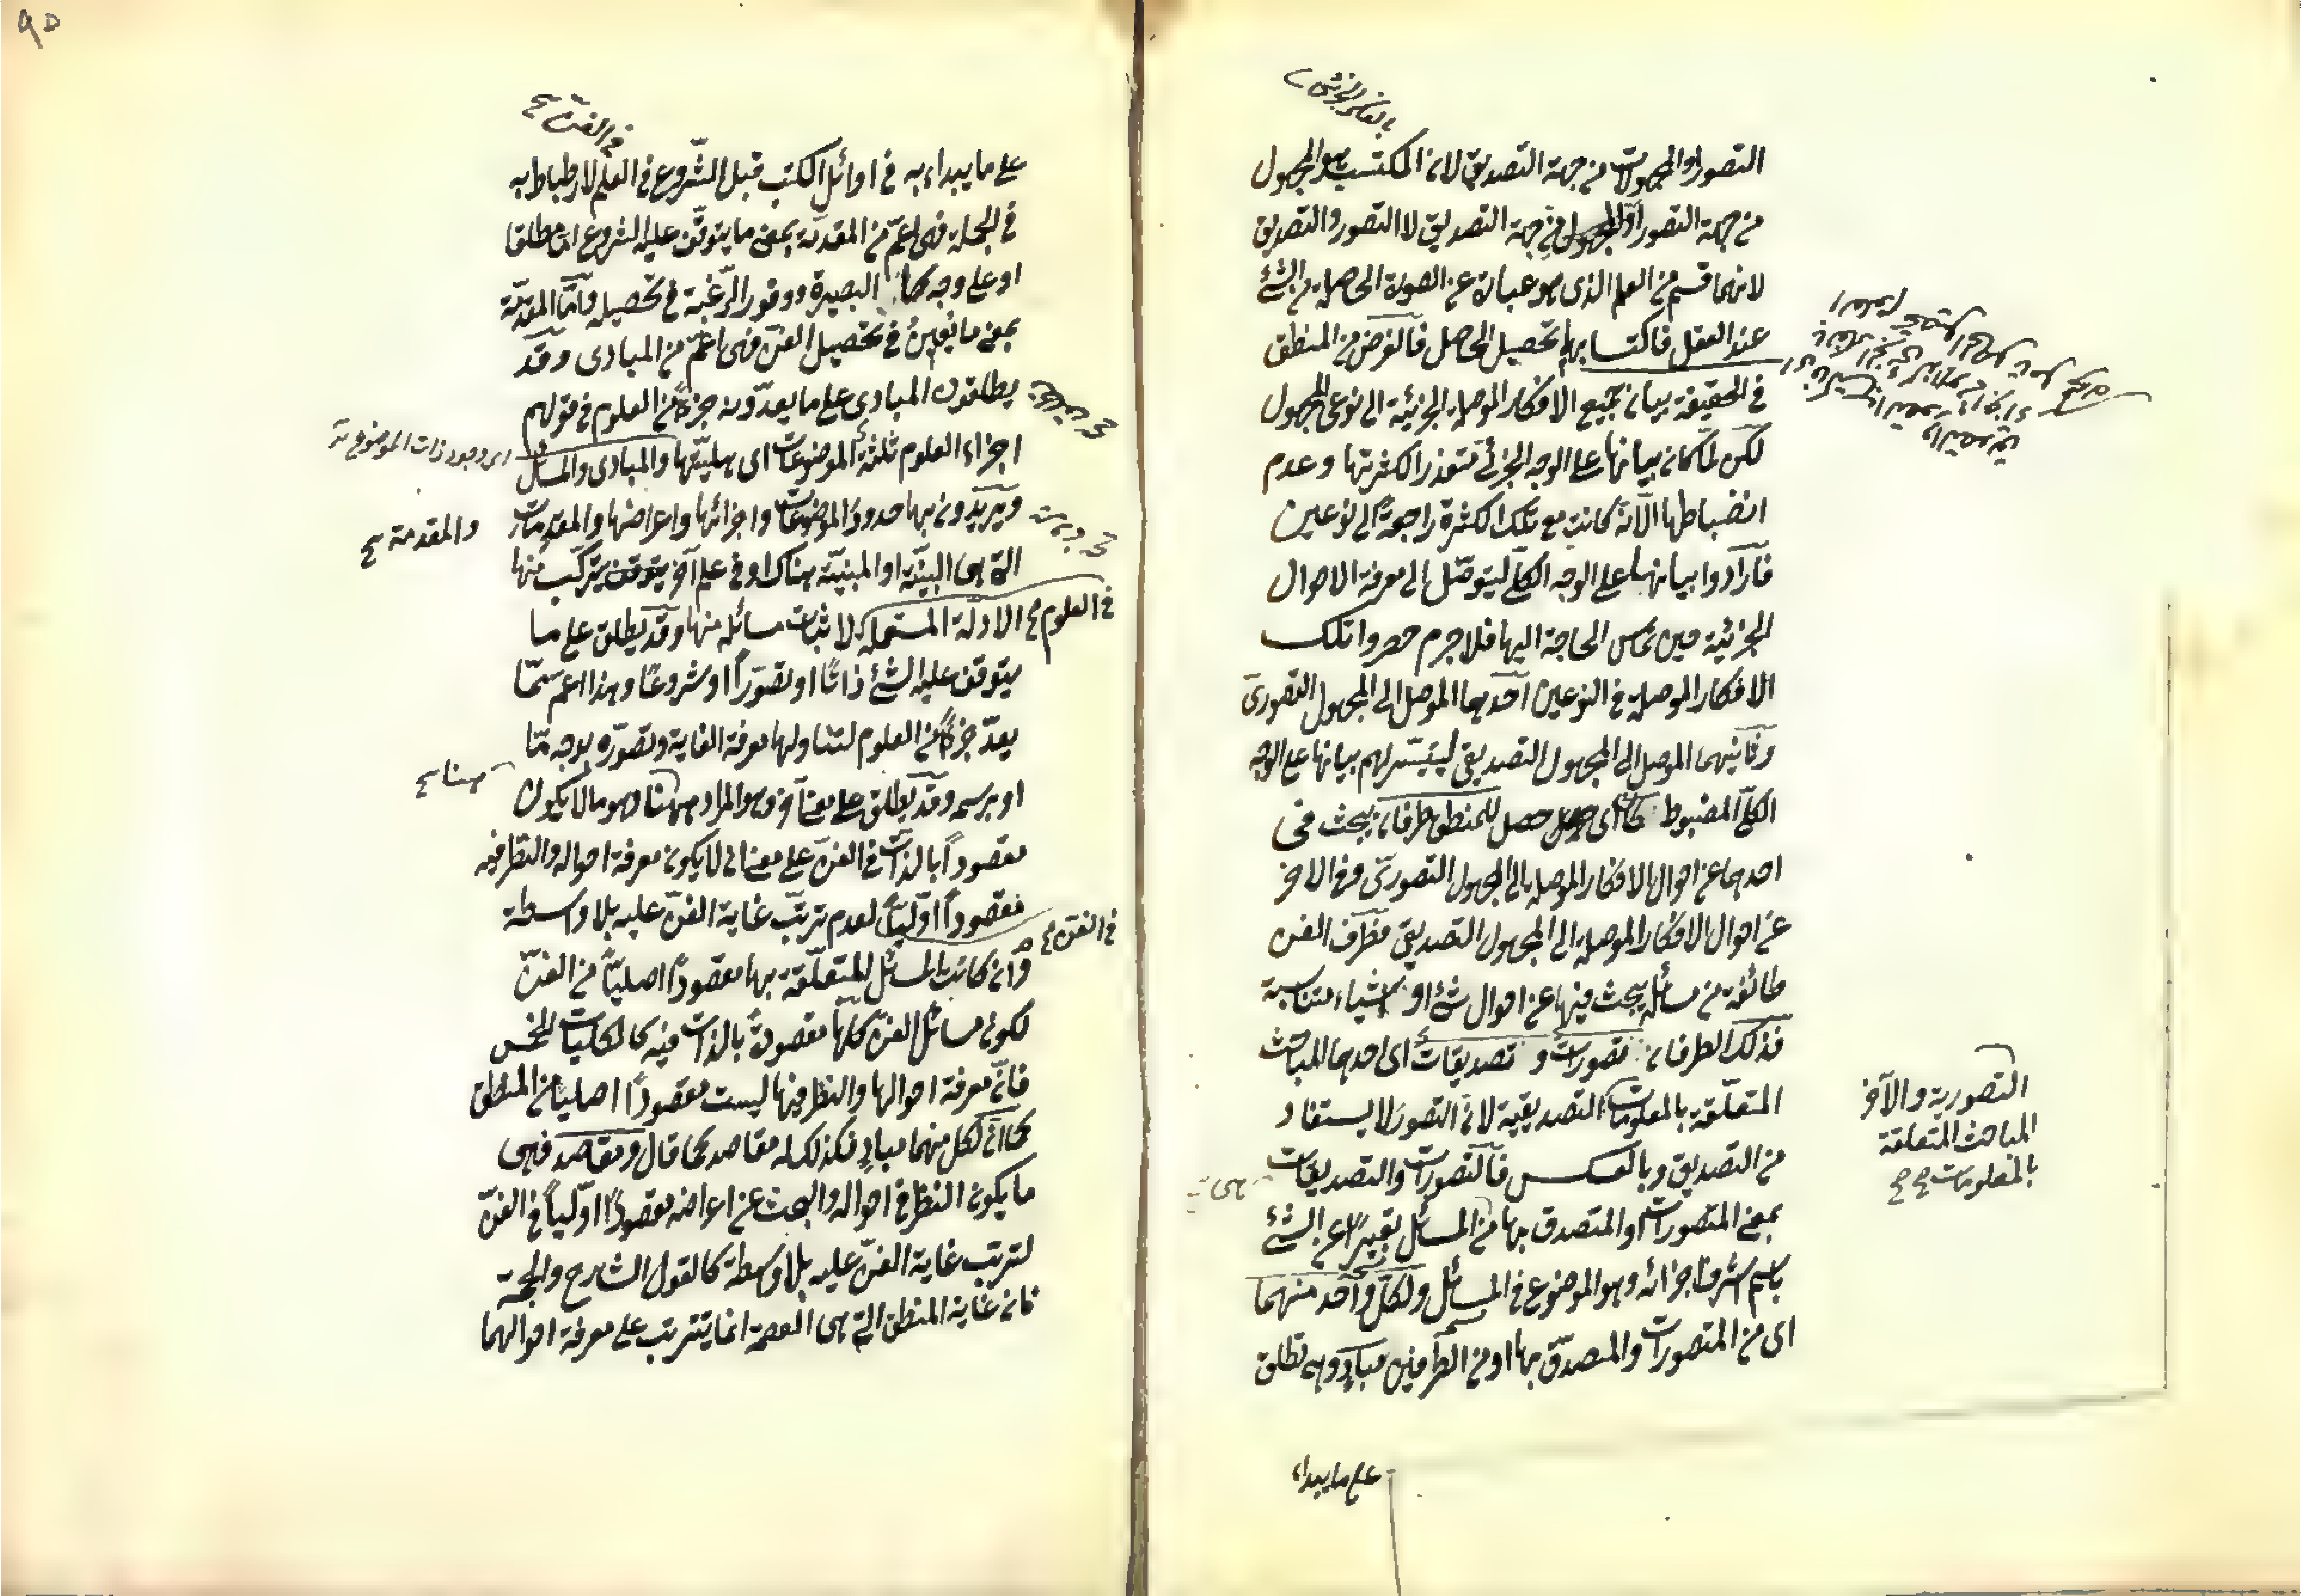 بالفكر الجزئي
التصور او المجهولات من جهة التصديق لان المكتسب هو المجهول
من جهة التصور او المجهول من جهة التصديق لا التصور والتصديق
لانهما قسم من العلم الذى هو عبارة عن الصورة الحاصلة من الشئ
عند العقل فاكتسابهما تحصيل الحاصل فالغرض من المنطق
فى الحقيقة بيان جميع الافكار الموصلة الجزئية الى نوعى المجهول
لكن لما كان بيانها على الوجه الجزئى متعذرا لكثرتها وعدم
انضباطها الا انه كانت مع تلك الكثرة راجعة الى نوعين
فارادوا بيانها على الوجه الكلى ليتوصل الى معرفة الاحوال
الجزئية حين تمس الحاجة اليها فلا جرم حصروا تلك
الافكار الموصلة فى النوعين احدهما الموصل الى المجهول التصورى
وثانيهما الموصل الى المجهول التصديقى ليتيسر لهم بيانها على الوجه
الكلى المضبوط حصل للمنطق طرفان يبحث فى
احدهما عن احوال الافكار الموصلة الى المجهول التصورى وفى الآخر
عن احوال الافكار الموصلة الى المجهول التصديقى فطرف الفن
طائفة من مسائله يبحث فيها عن احوال شئ او اشياء متناسبة
فذلك الطرفان تصورات و تصديقات اى احدهما المباحث
المتعلقة بالمعلومات التصديقية لان التصور لا يستفاد
من التصديق وبالعكس فالتصورات والتصديقات
بمعنى المتصورات او المتصدق بها من المسائل تعبيرا عن الشئ
باسم اشرف اجزائه وهو الموضوع فى المسائل ولكل واحد منهما
اى من المتصورات والمصدق بها او من الطرفين مباد وهى تطلق
التصورية والآخر
المباحث المتعلقة
بالمعلومات صح
هى
على ما يبداء
٩٥
فى الفن صح
على ما يبداء به فى اوائل الكتب قبل الشروع فى العلم لارطباط به
فى الجملة فهى اعم من المقدمة بمعنى ما يتوقف عليه الشروع اما مطلقا
او على وجه كمال البصيرة ووفور الرغبة فى تحصيله واما المقدمة
بمعنى ما يعين فى تحصيل الفن فهى اعم من المبادى وقد
يطلقون المبادى على ما يعدونه جزءا من العلوم فى قولهم
اجزاء العلوم ثلثة الموضوعات اى هليتها والمبادى والمسائل
اى وجود ذات الموضوع
ويريدون بها حدود الموضوعات واجزائها واعراضها والمقدمات
والمقدمة صح
التى هى البينة او المبينة هناك او فى علم آخر يتوقف يتركب منها
فى العلوم صح
الادلة المستعملة لاثبات مسائله منها وقد يطلق على ما
يتوقف عليه الشئ ذاتا او تصورا او شروعا وهذا اعم مما
يعد جزءا من العلوم لتناولها معرفة الغاية وتصوره بوجه ما
او برسمه وقد يطلق على معنى آخر وهو المراد ههنا وهو ما لا يكون
ههنا صح
مقصودا بالذات فى الفن على معنى ان لا يكون معرفة احواله والنظر فيه
مقصودا اوليا لعدم ترتب غاية الفن عليه بلا واسطة
فى الفن صح
وان كانت المسائل المتعلقة بها مقصودا اصليا من الفن
لكون مسائل الفن كلها مقصودة بالذات فيه كالكليات الخمس
فان معرفة احوالها والنظر فيها ليست مقصودا اصليا من المنطق
كما ان لكل منهما مباد فكذلك له مقاصد كما قال ومقاصد فهى
ما يكون النظر فى احواله والبحث عن اعراضه مقصودا اوليا فى الفن
لترتب غاية الفن عليه بلا واسطة كالقول الشارح والحجة
فان غاية المنطق التى هى العصمة انما يترتب على معرفة احوالهما